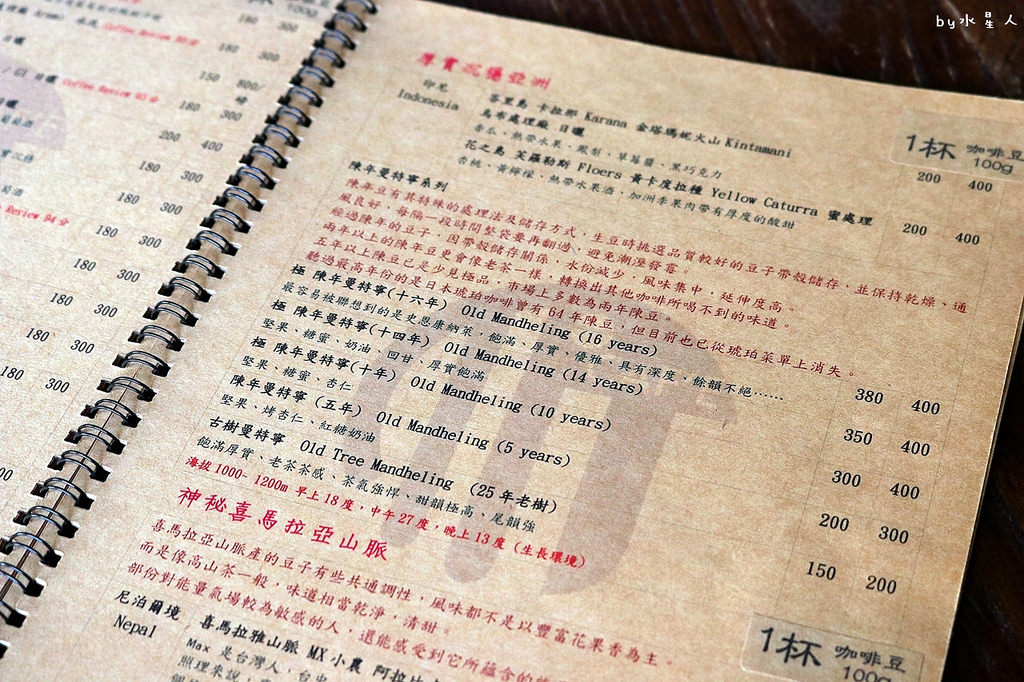 by水星人
100g
180 300
Coffee Review 93分
180 300
150 800/
G1 日曬 Coffee Review 93分
180 300
200 400
180 300
180 300
Review 94分
180 300
180 300
180 300
180 300
180 300
厚實沉穩亞洲
印尼
Indonesia
峇里島 卡拉那 Karana 金塔瑪妮火山 Kintamani
烏布處理廠 日曬
香瓜、熱帶水果、鳳梨、草莓醬、黑巧克力
1杯 咖啡豆
100g
200 400
花之島 芙羅勒斯 Floers 黃卡度拉種 Yellow Caturra 蜜處理
杏桃、黃檸檬、熱帶水果酒、加洲李果肉帶有厚度的酸甜
200 400
陳年曼特寧系列
陳年豆有其特殊的處理法及儲存方式，生豆時挑選品質較好的豆子帶殼儲存，並保持乾燥、通
風良好，每隔一段時間整袋要再翻過、避免潮溼發霉。
經過陳年的豆子，因帶殼儲存關係，水份減少，風味集中，延伸度高。
兩年以上的陳年豆更會像老茶一樣，轉換出其他咖啡所喝不到的味道。
五年以上陳豆已是少見極品，市場上多數為兩年陳豆。
聽過最高年份的是日本琥珀咖啡曾有64年陳豆，但目前也已從琥珀菜單上消失。
極 陳年曼特寧(十六年) Old Mandheling (16 years)
380 400
最容易被聯想到的是史恩康納萊，飽滿、厚實、優雅、具有深度、餘韻不絕……
極 陳年曼特寧(十四年) Old Mandheling (14 years)
350 400
堅果、糖蜜、奶油、回甘、厚實飽滿
極 陳年曼特寧(十年) Old Mandheling (10 years)
300 400
堅果、糖蜜、杏仁
陳年曼特寧 (五年) Old Mandheling (5 years)
200 300
堅果、烤杏仁、紅糖奶油
古樹曼特寧 Old Tree Mandheling (25年老樹)
150 200
飽滿厚實、老茶茶感、茶氣強悍、甜韻極高、尾韻強
海拔1000~ 1200m 早上18度，中午27度，晚上13度 (生長環境)
神秘喜馬拉亞山脈
喜馬拉亞山脈產的豆子有些共通調性，風味都不是以豐富花果香為主。
而是像高山茶一般，味道相當乾淨，清甜。
部份對能量氣場較為敏感的人，還能感受到它所蘊含的
1杯 咖啡豆
100g
尼泊爾境
Nepal
喜馬拉雅山脈 MX小農 阿拉比
Max 是台灣人，台中
照理來說，